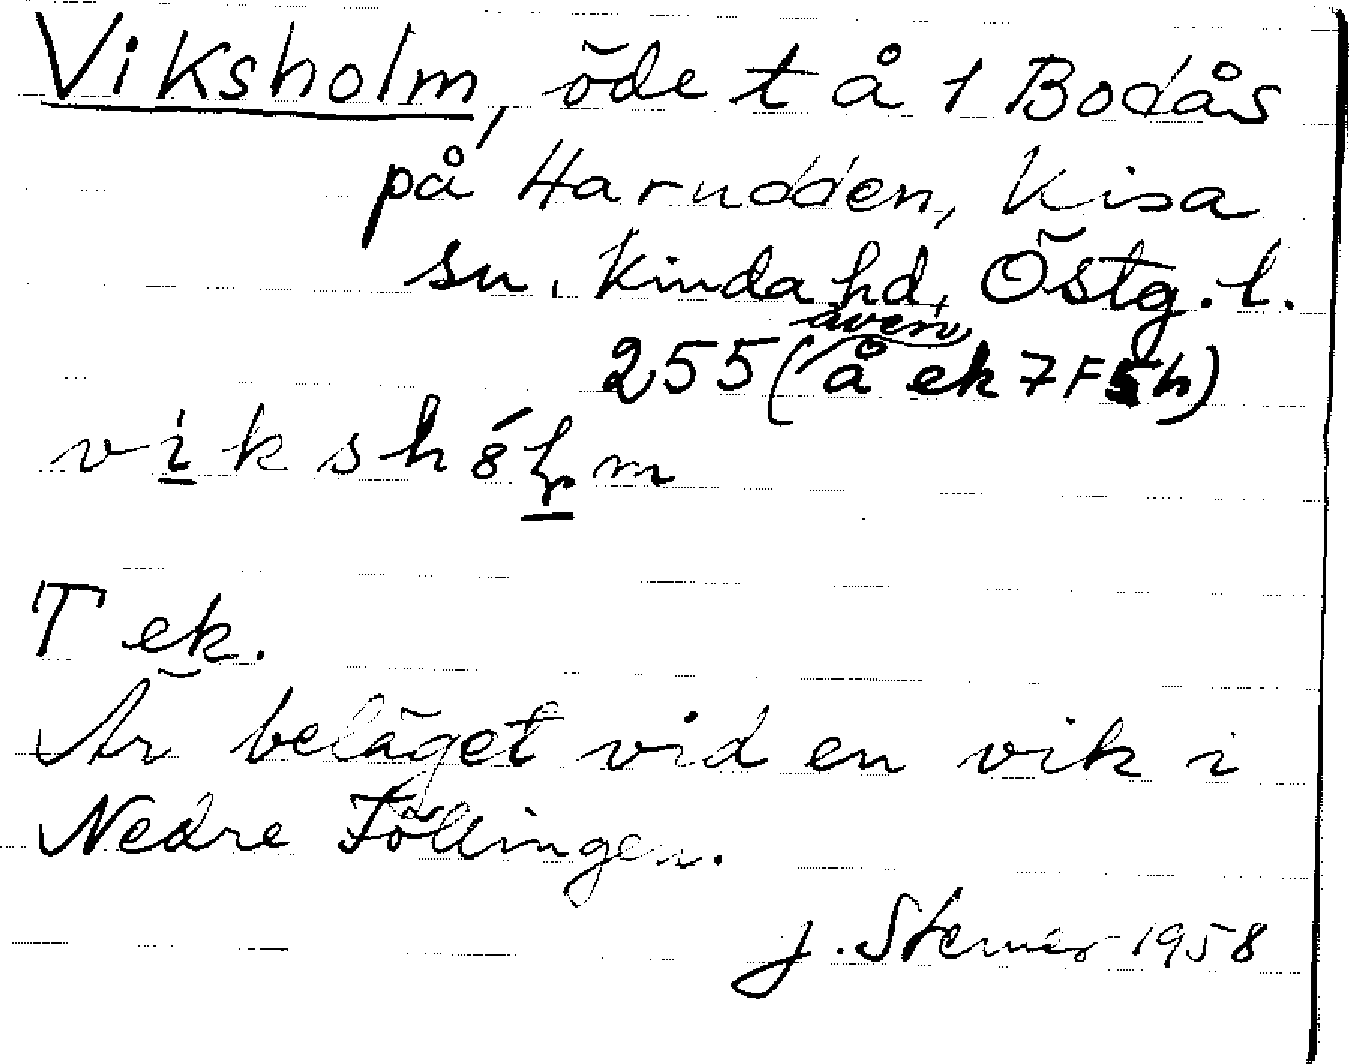 Viksholm, öde t å 1 Bodås
på Harudden, Kisa
sn. Kinda hd, Östg. l.
255 (även å ek 7F5h)
vikshólm
T ek.
Är beläget vid en vik i
Nedre Föllingen.
J. Sterner 1958